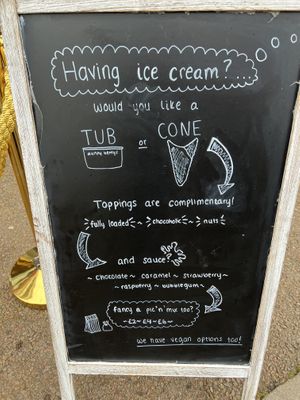 Having ice cream?...
Would you like a
TUB or CONE
Toppings are complimentary!
fully loaded ~ chocoholic ~ nuts
and sauce?
~ chocolate ~ caramel ~ strawberry ~
~ raspberry ~ bubblegum ~
fancy a pic'n'mix too?
~ £2 ~ £4 ~ £6 ~
we have vegan options too!